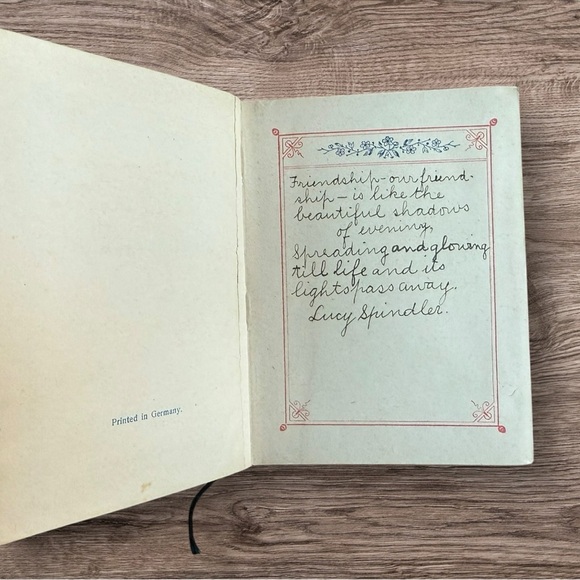 Printed in Germany.
Friendship-our friend-
ship - is like the
beautiful shadows
of evening,
Spreading and glowing
till life and its
lights pass away.
Lucy Spindler.